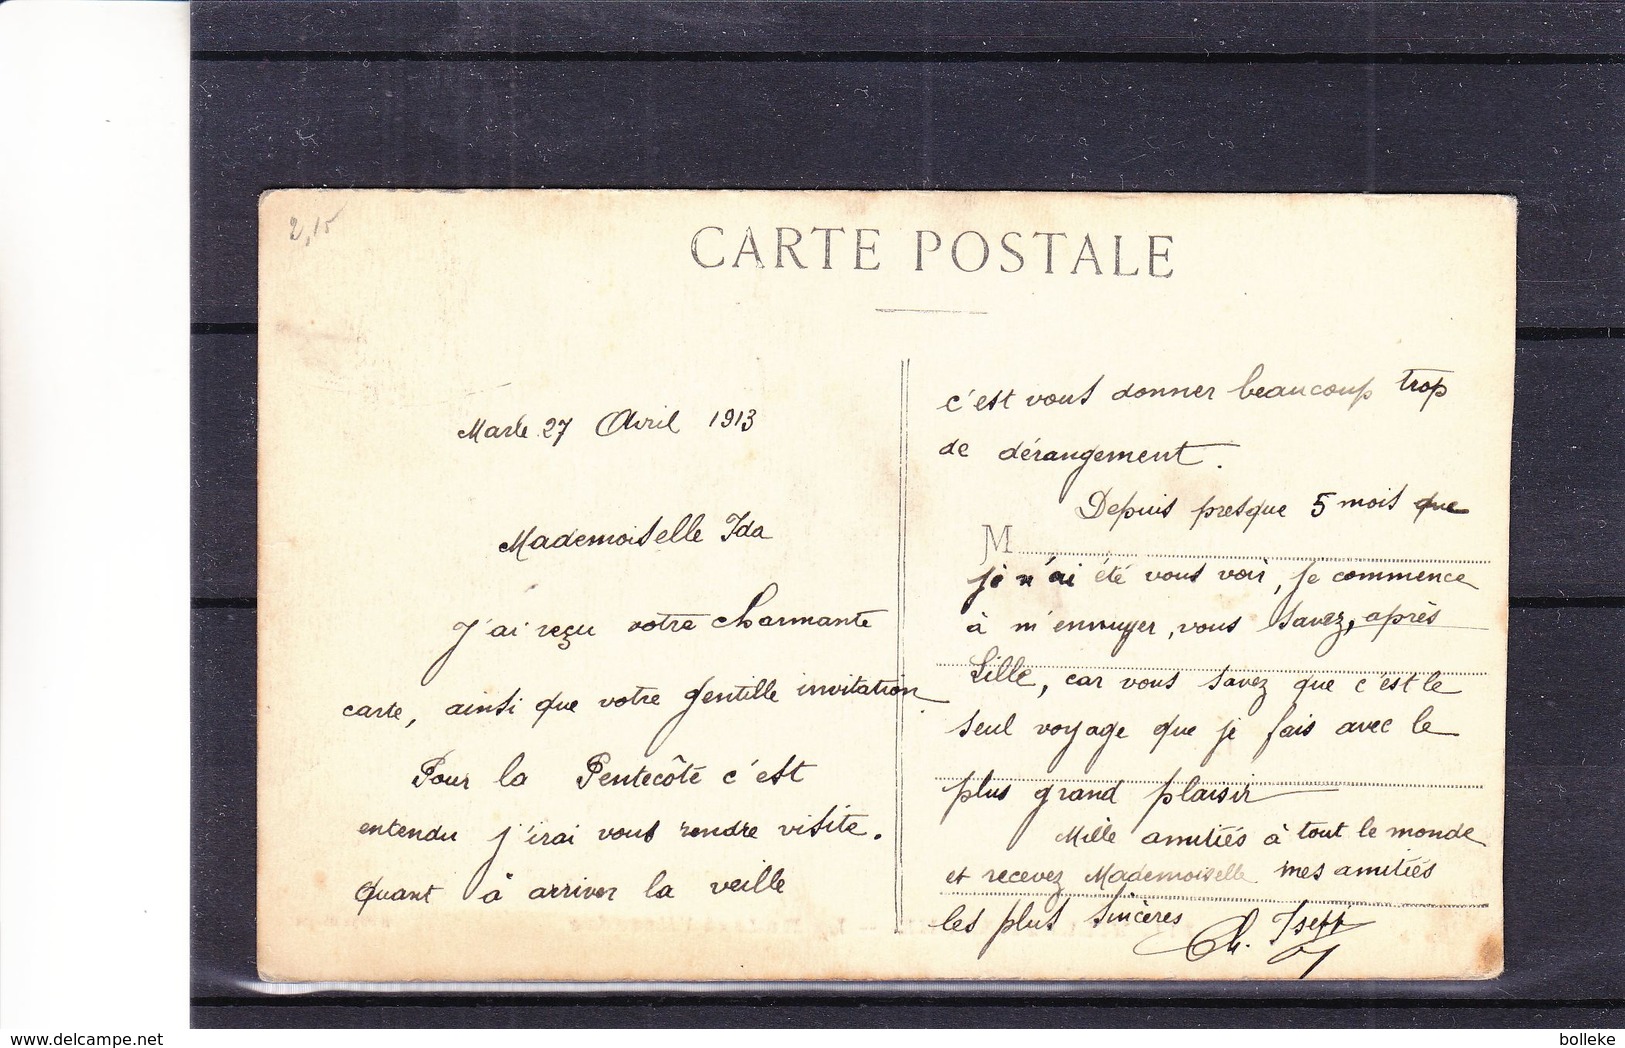 2,15
CARTE POSTALE
Marle 27 Avril 1913
Mademoiselle Ida
J'ai reçu votre charmante
carte, ainsi que votre gentille invitation
Pour la Pentecôte c'est
entendu j'irai vous rendre visite.
Quant à arriver la veille
c'est vous donner beaucoup trop
de dérangement.
Depuis presque 5 mois que
M
je n'ai été vous voir, je commence
à m'ennuyer, vous savez, après
Lille, car vous savez que c'est le
seul voyage que je fais avec le
plus grand plaisir
Mille amitiés à tout le monde
et recevez Mademoiselle mes amitiés
les plus sincères
Ch.
delcampe.net
bolleke